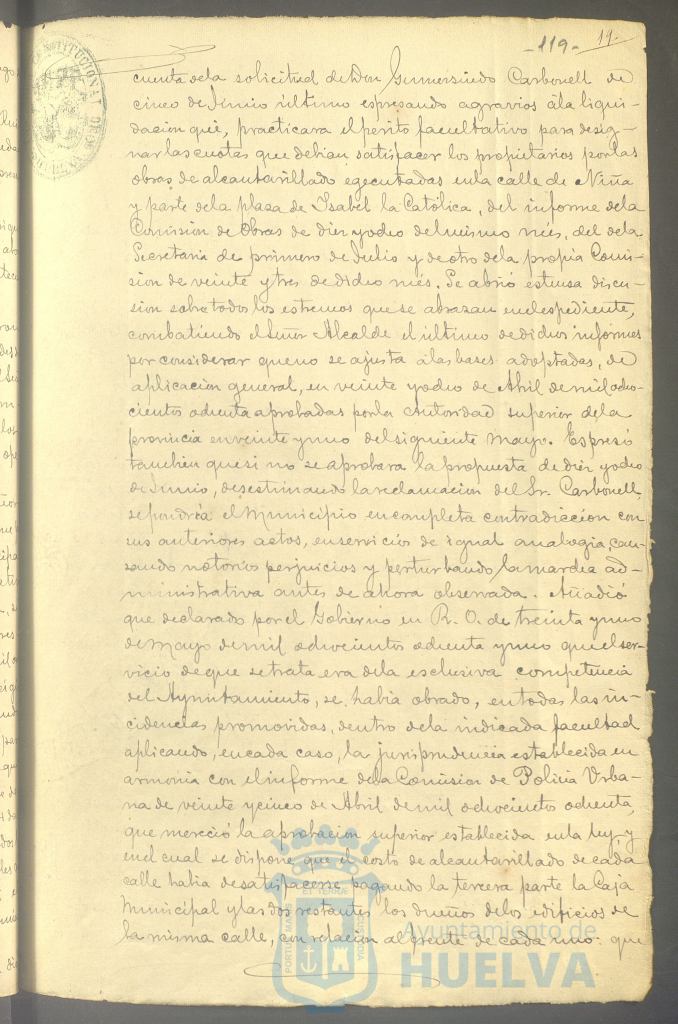 -119- 19.
cuenta dela solicitud de Don Gumersindo Carbonell de
cinco de Junio último espresando agravios ála liqui-
dacion que, practicara el perito facultativo para desig-
nar las cuotas que debian satisfacer los propietarios por las
obras de alcantarillado egecutadas enla calle de Niña
y parte dela plaza de Isabel la Católica, del informe dela
Comision de Obras de diez yocho delmismo més, del dela
Secretaria de primero de Julio y de otro dela propia Comi-
sion de veinte y tres de dicho més. Se abrió estensa discu-
sion sobre todos los estremos que se abrazan enelespediente,
combatiendo el Señor Alcalde el último de dichos informes
por considerar queno se ajusta álas bases adoptadas, de
aplicacion general, en veinte yocho de Abril de mil ocho-
cientos ochenta aprobadas porla Autoridad superior dela
provincia en veinte yuno del siguiente mayo. Espresó
tambien que si no se aprobara la propuesta de diez yocho
de Junio, desestimando la reclamacion del Sr. Carbonell,
se pondría el Municipio en completa contradiccion con
sus anteriores actos, en servicios de igual analogia, cau-
sando notorios perjuicios y perturbando la marcha ad-
ministrativa antes de ahora observada. Añadió
que declarado por el Gobierno en R. O. de treinta yuno
de Mayo de mil ochocientos ochenta yuno que el ser-
vicio de que se trata era dela esclusiva competencia
del Ayuntamiento, se habia obrado, en todas las in-
cidencias promovidas, dentro dela indicada facultad
aplicando, en cada caso, la jurisprudencia establecida en
armonia con el informe dela Comision de Policia Urba-
na de veinte ycinco de Abril de mil ochocientos ochenta,
que mereció la aprobacion superior establecida enla ley y
enel cual se dispone que el costo de alcantarillado de cada
calle habia de satisfacerse pagando la tercera parte la Caja
Municipal y las dos restantes los dueños delos edificios de
la misma calle, con relacion al frente de cada uno: que
Ayuntamiento de
HUELVA